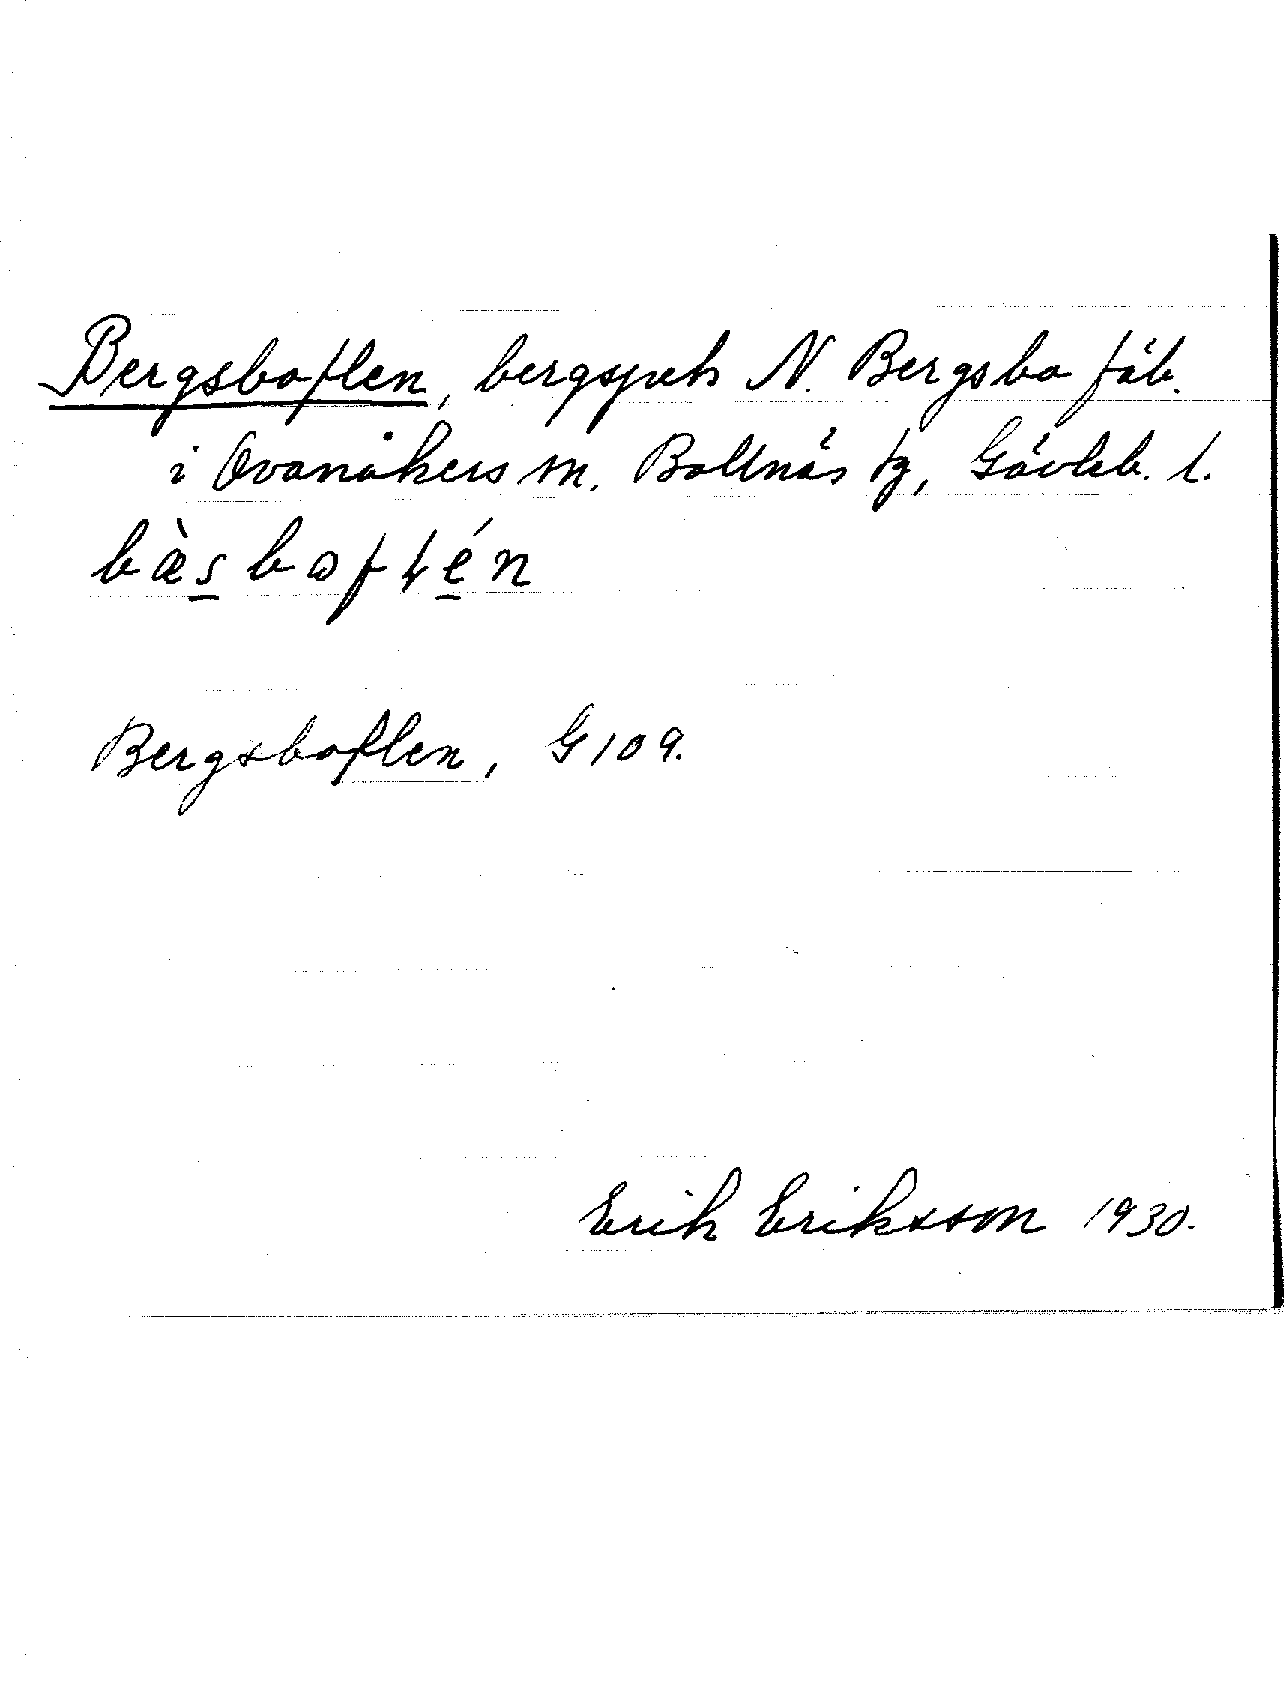 Bergsboflen, bergspets N. Bergsbo fäb.
i Ovanåkers sn. Bollnäs tg, Gävleb. l.
bæ̀s boflén
Bergsboflen, G 109.
Erik Eriksson 1930.